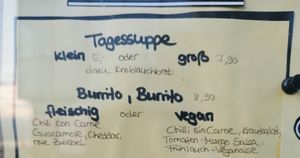 Tagessuppe
klein 5,- oder groß 7,90
dazu Knoblauchbrot
Burrito, Burrito 8,90
fleischig oder vegan
Chili con Carne
Guacamole, Cheddar,
rote Zwiebel
Chilli sin Carne, Krautsalat,
Tomaten-Mango Salsa,
Frühlauch-Veganaise